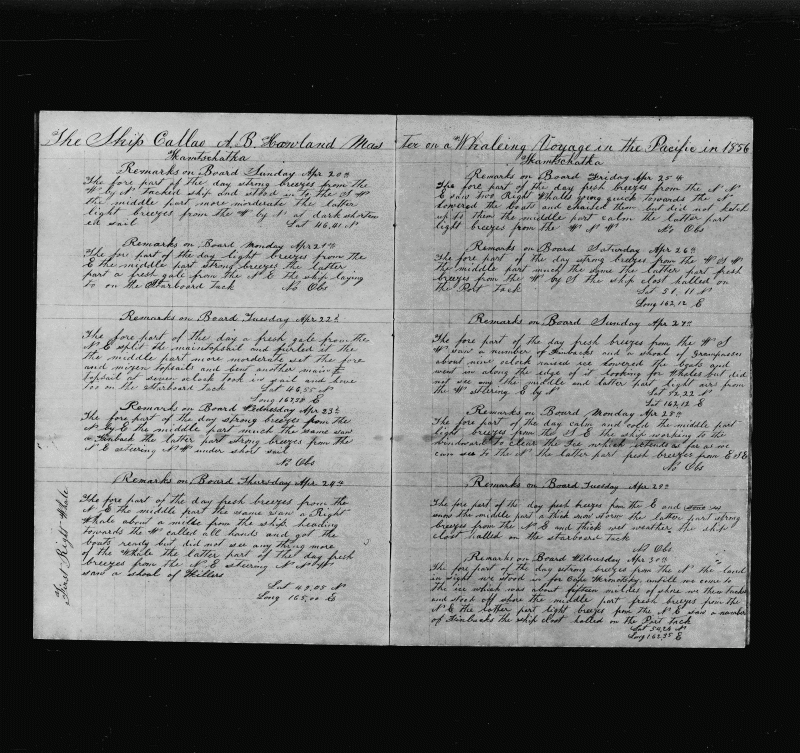 The Ship Callao A. B. Howland Mas
Kamtschatka
Remarks on Board Sunday Apr 20th
The fore part of the day strong breezes from the
W by N tacked ship and stood in to the S W
the middle part more morderate the latter
light breezes from the W by N at dark shorten
ed sail Lat 46,41 N
Remarks on Board Monday Apr 21st
The fore part of the day light breezes from the
E the middle part strong breezes the latter
part a fresh gale from the N E the ship laying
to on the Starboard Tack No Obs
Remarks on Board Tuesday Apr 22d
The fore part of the day a fresh gale from the
N E split the maintopsail and furled it the
the middle part more morderate set the fore
and mizen topsails and bent another main
topsail at seven oclock took in sail and hove
too on the Starboard Tack Lat 46,55 N
Long 162,58 E
Remarks on Board Wednesday Apr 23d
The fore part of the day strong breezes from the
N by E the middle part much the same saw
a Finback the latter part strong breezes from the
N E steering N W under short sail
No Obs
Remarks on Board Thursday Apr 24th
The fore part of the day fresh breezes from the
N E the middle part the same saw a Right
Whale about a milee from the ship heading
towards the W called all hands and got the
boats ready but did not see any thing more
of the Whale the latter part of the day fresh
breezes from the N E steering N N W
saw a shoal of Killers
Lat 49,05 N
Long 165,00 E
First Right Whale
Ter on a Whaleing Voyage in the Pacific in 1856
Kamtschatka
Remarks on Board Friday Apr 25th
The fore part of the day fresh breezes from the N N
E saw two Right Whales going quick towards the N
lowered the boats and chased them but did not ketch
up to them the middle part calm the latter part
light breezes from the W N W No Obs
Remarks on Board Saturday Apr 26th
The fore part of the day strong breezes from the W S W
the middle part much the same the latter part fresh
breezes from the W by S the ship clost halled on
the Port Tack Lat 51,11 N
Long 162,12 E
Remarks on Board Sunday Apr 27th
The fore part of the day fresh breezes from the W S
W saw a number of Finbacks and a shoal of Grampusses
about nine oclock raised ice lowered the boats and
went in along the edge of it looking for Whales but did
not see any the middle and latter part light airs from
the W stering E by N Lat 52,22 N
Long 162,12 E
Remarks on Board Monday Apr 28th
The fore part of the day calm and cold the middle part
light breezes from the S E the ship working to the
windward to clear the Ice which extends as far as we
can see to the N the latter part fresh breezes from E S E
No Obs
Remarks on Board Tuesday Apr 29th
The fore part of the day fresh breezes from the E and
snow the middle part a thick snow storm the latter part strong
breezes from the N E and thick wet weather the ship
clost halled on the starboard Tack
No Obs
Remarks on Board Wednesday Apr 30th
The fore part of the day strong breezes from the N the land
in sight we stood in for Cape untill we come to
the ice which was about fifteen milees of shore we then tacked
and stood off shore the middle part fresh breezes from the
N E the latter part light breezes from the N E saw a number
of Finbacks the ship clost halled on the Port Tack
Lat 54,26 N
Long 162,35 E